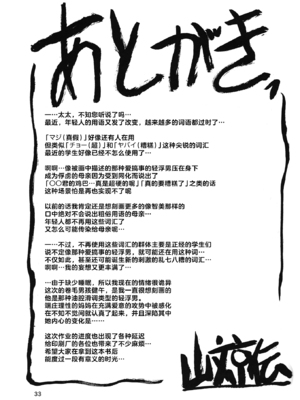 あとがき。
一…太太，不知您听说了吗…
最近，年轻人的用语又发了改变，越来越多的词语都过时了…
「マジ(真假)」好像还有人在用
但类似「チョー(超)」和「ヤバイ(糟糕)」这种尖锐的词汇
最近的学生好像已经不怎么使用了…
啊啊…像被画中描述的那种爱搞事的轻浮男压在身下
成为俘虏的母亲因为受到同化而说出了
「〇〇君的鸡巴…真是超硬的呢」「真的要糟糕了」之类的话
这种场景怕是再也实现不了呢
以前的话我肯定还是想刻画更多的像智美那样的
口中绝对不会说出粗俗用语的母亲…
年轻人都不再用这些词汇了
又怎么可能传染给母亲呢…
一…不过，不再使用这些词汇的群体主要是正经的学生们
说不定像那种爱搞事的轻浮男，就可能还在用这种词…
不仅如此，甚至还可能诞生新的刺激的乱七八糟的词汇…
啊啊…我的妄想又更丰满了…
一由于缺少睡眠，所以我现在的情绪很诡异
这次的卷毛男孩健午，是我一直很想刻画的
他是那种油腔滑调类型的轻浮男，
端庄理性的妈妈在充满爱意的攻势中被感化
在不知不觉间就认真了起来，并且深陷其中
她内心的变化是…
这次作业的进度也出现了各种延迟
给印刷厂的各位也带来了不少麻烦…
希望大家在拿到这本书后
能度过一段有意义的时光…
33